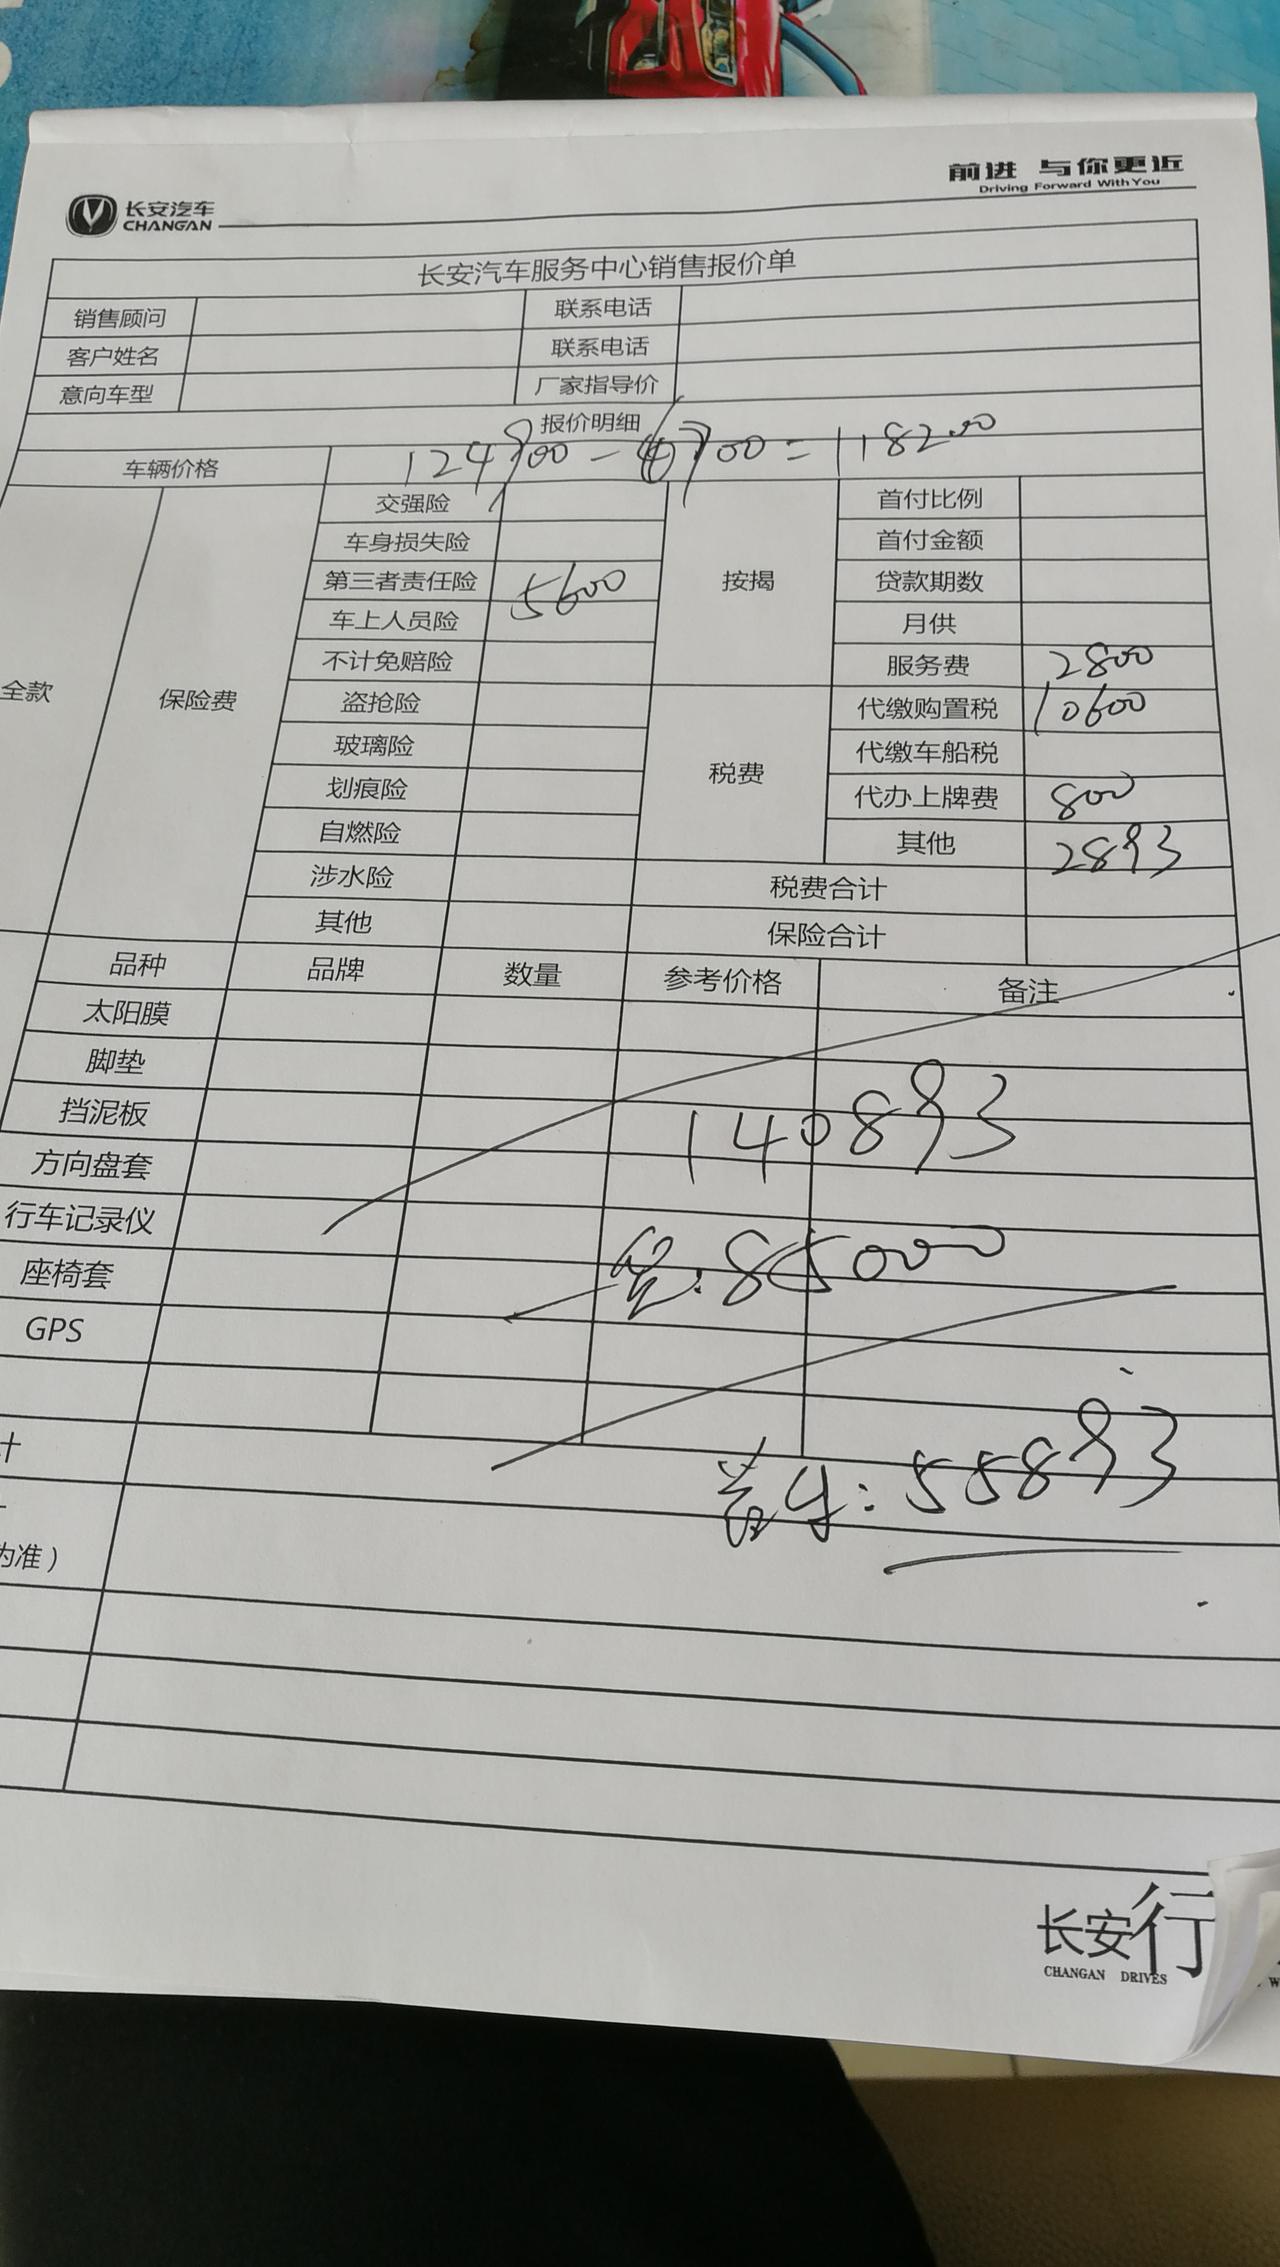 前进 与你更近
Driving Forward With You
长安汽车
CHANGAN
长安汽车服务中心销售报价单
销售顾问 联系电话
客户姓名 联系电话
意向车型 厂家指导价
报价明细
车辆价格 124900-6700=118200
全款 保险费 交强险 按揭 首付比例
车身损失险 首付金额
第三者责任险 5600 贷款期数
车上人员险 月供
不计免赔险 服务费 2800
盗抢险 税费 代缴购置税 10600
玻璃险 代缴车船税
划痕险 代办上牌费 800
自燃险 其他 2893
涉水险 税费合计
其他 保险合计
品种 品牌 数量 参考价格 备注
太阳膜
脚垫
挡泥板
140893
方向盘套
行车记录仪
座椅套
85000
GPS
计
55893
为准）
长安行
CHANGAN DRIVES